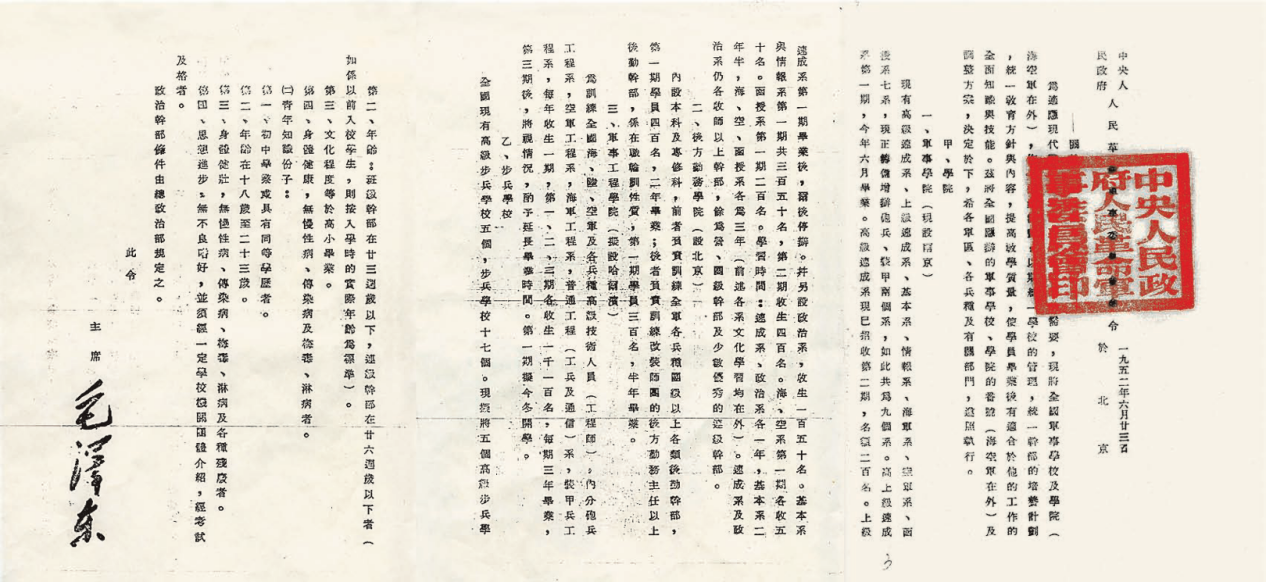 中央人
民政府
人民革命軍事委員會命令
一九五二年六月廿三日
於北京
中央人民政
府人民革命軍
事委員會印
需要,現將全國軍事學校及學院(
海空軍在外)
學校的管理,統一幹部的培養計劃
,統一教育方針與內容,提高教學質量,使學員畢業後有適合於他的工作的
全面知識與技能。茲將全國應辦的軍事學校、學院的番號(海空軍在外)及
調整方案,決定於下,希各軍區、各兵種及有關部門,遵照執行。
甲、學院
一、軍事學院(現設南京)
現有高級速成系、上級速成系、基本系、情報系、海軍系、空軍系、函
授系七系,現正籌備增辦砲兵、裝甲兩個系,如此共為九個系。高上級速成
系第一期,今年六月畢業。高級速成系現已招收第二期,名額二百名。上級
速成系第一期畢業後,爾後停辦。并另設政治系,收生一百五十名。基本系
與情報系第一期共三百五十名,第二期收生四百名。海、空系第一期各收五
十名。函授系第一期二百名。學習時間:速成系、政治系各一年,基本系二
年半,海、空、函授系各為三年(前述各系文化學習均在外)。速成系及政
治系仍各收師以上幹部,餘為營、團級幹部及少數優秀的連級幹部。
二、後方勤務學院(設北京)
內設本科及專修科,前者負責訓練全軍各兵種團級以上各類後勤幹部,
第一期學員四百名,二年畢業;後者負責訓練改裝師團的後方勤務主任以上
後勤幹部,係在職輪訓性質,第一期學員三百名,半年畢業。
三、軍事工程學院(擬設哈爾濱)
為訓練全國海、陸、空軍及各兵種高級技術人員(工程師),內分砲兵
工程系,空軍工程系,海軍工程系,普通工程(工兵及通信)系,裝甲兵工
程系,每年收生一期,第一、二、三期各收生一千一百名,每期三年畢業,
第三期後,將視情況,酌予延長畢業時間。第一期擬今冬開學。
乙、步兵學校
全國現有高級步兵學校五個,步兵學校十七個。現擬將五個高級步兵學
第二、年齡:班級幹部在廿三週歲以下,連級幹部在廿六週歲以下者(
如係以前入校學生,則按入學時的實際年齡為標準)。
第三、文化程度等於高小畢業。
第四、身體健康,無慢性病、傳染病及梅毒、淋病者。
㈡青年知識份子:
第一、初中學業或具有同等學歷者。
第二、年齡在十八歲至二十三歲。
第三、身體健壯,無慢性病、傳染病、梅毒、淋病及各種殘廢者。
第四、思想進步,無不良嗜好,並須經一定學校機關團體介紹,經考試
及格者。
政治幹部條件由總政治部規定之。
此令
主席
毛澤东